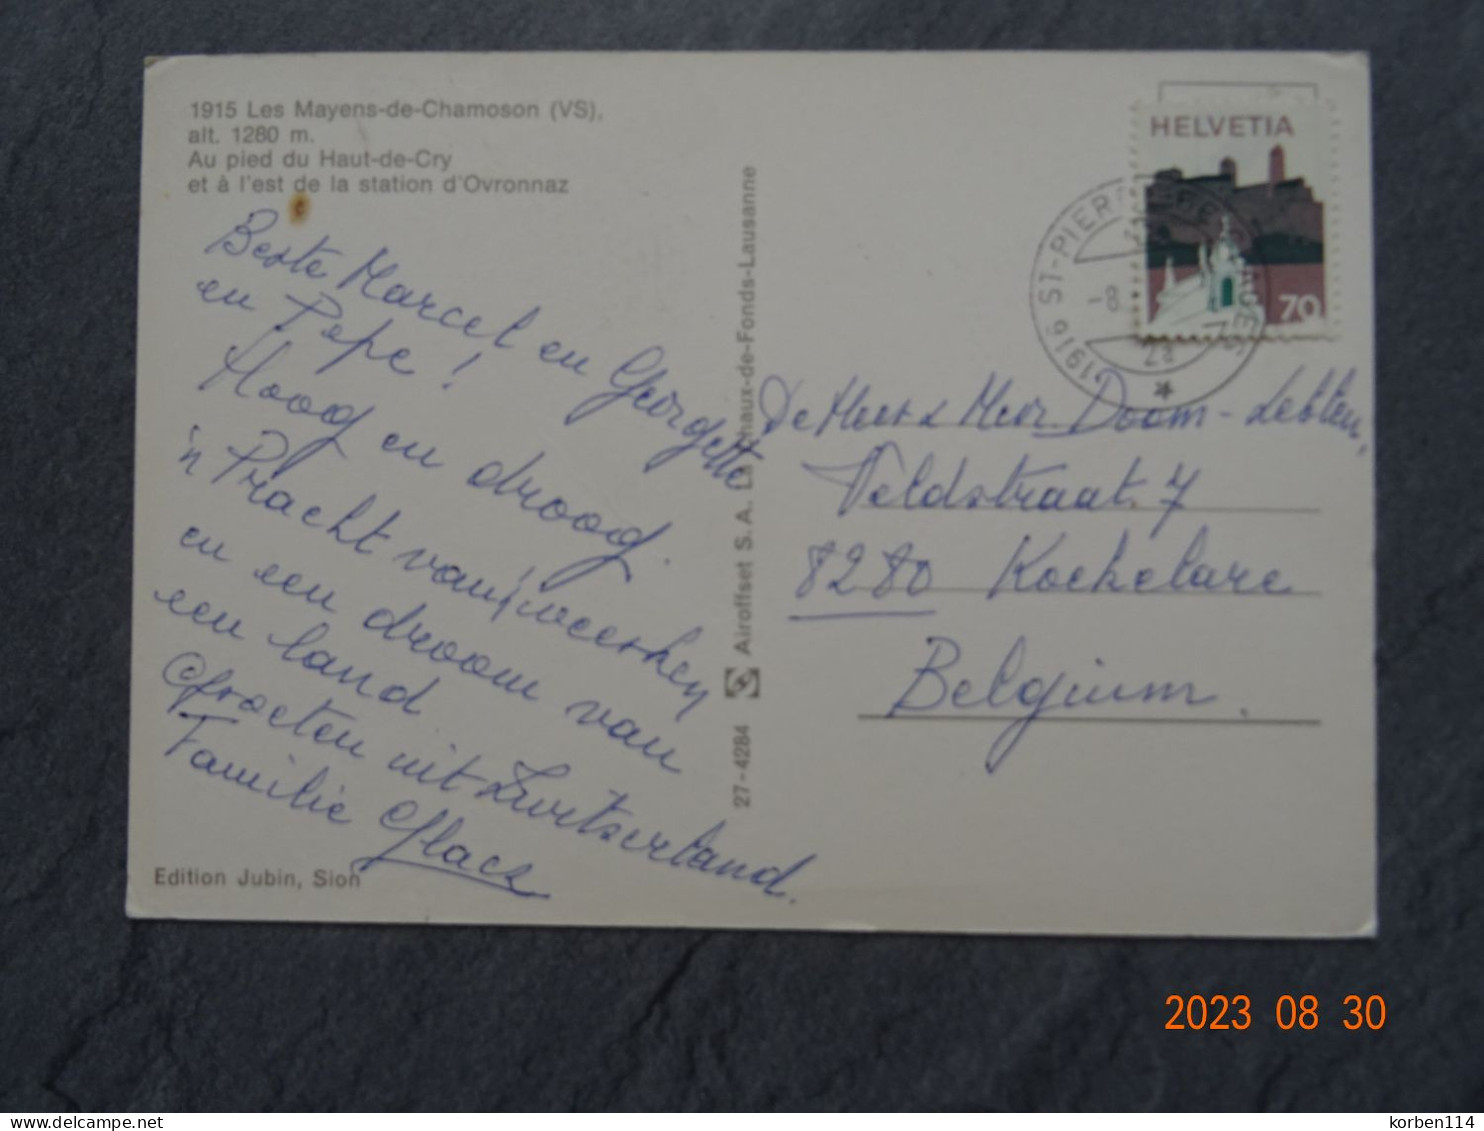 1915 Les Mayens-de-Chamoson (VS),
alt. 1280 m.
Au pied du Haut-de-Cry
et à l'est de la station d'Ovronnaz
Beste Marcel en Georgette
en Pepe !
Hoog en droog.
'n Pracht van
en een droom van
een land.
Groeten uit Zwitserland.
Familie
Edition Jubin, Sion
27-4284 Airoffset S.A. La Chaux-de-Fonds-Lausanne
HELVETIA
70
1916 ST-PIERRE-DE-CLAGES
-8
De Heer & Mevr Doom-
Veldstraat. 7
8280 Koekelare
Belgium.
2023 08 30
korben114